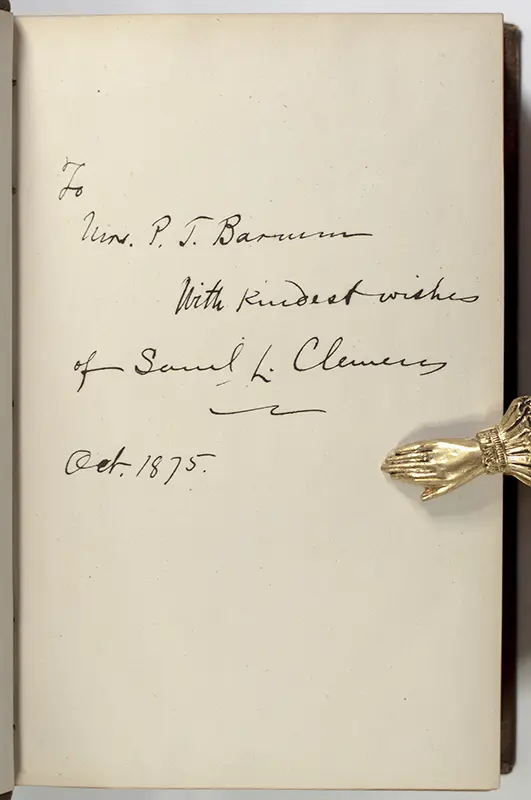 To
Mrs. P. T. Barnum
With kindest wishes
of Saml L. Clemens
Oct. 1875.